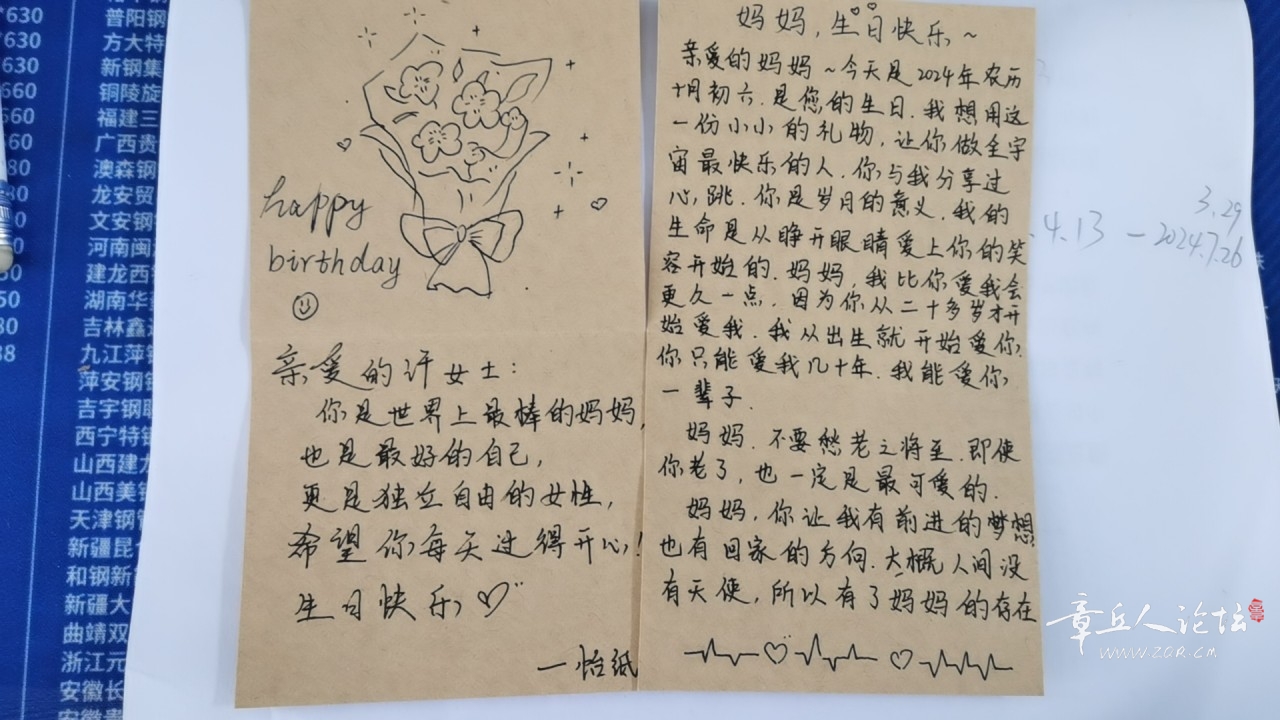 happy
birthday
亲爱的许女士：
你是世界上最棒的妈妈，
也是最好的自己，
更是独立自由的女性，
希望你每天过得开心！
生日快乐
一怡纸
妈妈，生日快乐~
亲爱的妈妈~今天是2024年农历
十月初六.是您的生日.我想用这
一份小小的礼物，让你做全宇
宙最快乐的人.你与我分享过
心跳.你是岁月的意义.我的
生命是从睁开眼睛爱上你的笑
容开始的.妈妈，我比你爱我会
更久一点，因为你从二十多岁才开
始爱我.我从出生就开始爱你，
你只能爱我几十年.我能爱你
一辈子.
妈妈.不要愁老之将至.即使
你老了，也一定是最可爱的.
妈妈，你让我有前进的梦想
也有回家的方向.大概人间没
有天使，所以有了妈妈的存在
3.29
4.13 — 2024.7.26
630
普阳钢
630
方大特
630
新钢集
660
铜陵旋
560
福建三
广西贵
澳森钢
龙安贸
文安钢
河南闽
建龙西
50
湖南华
80
吉林鑫
88
九江萍
萍安钢
吉宇钢
西宁特
山西建龙
山西美
天津钢管
新疆昆
和钢新
新疆大
曲靖双
浙江元
安徽长
安徽贵
章丘人论坛
www.ZQR.CM